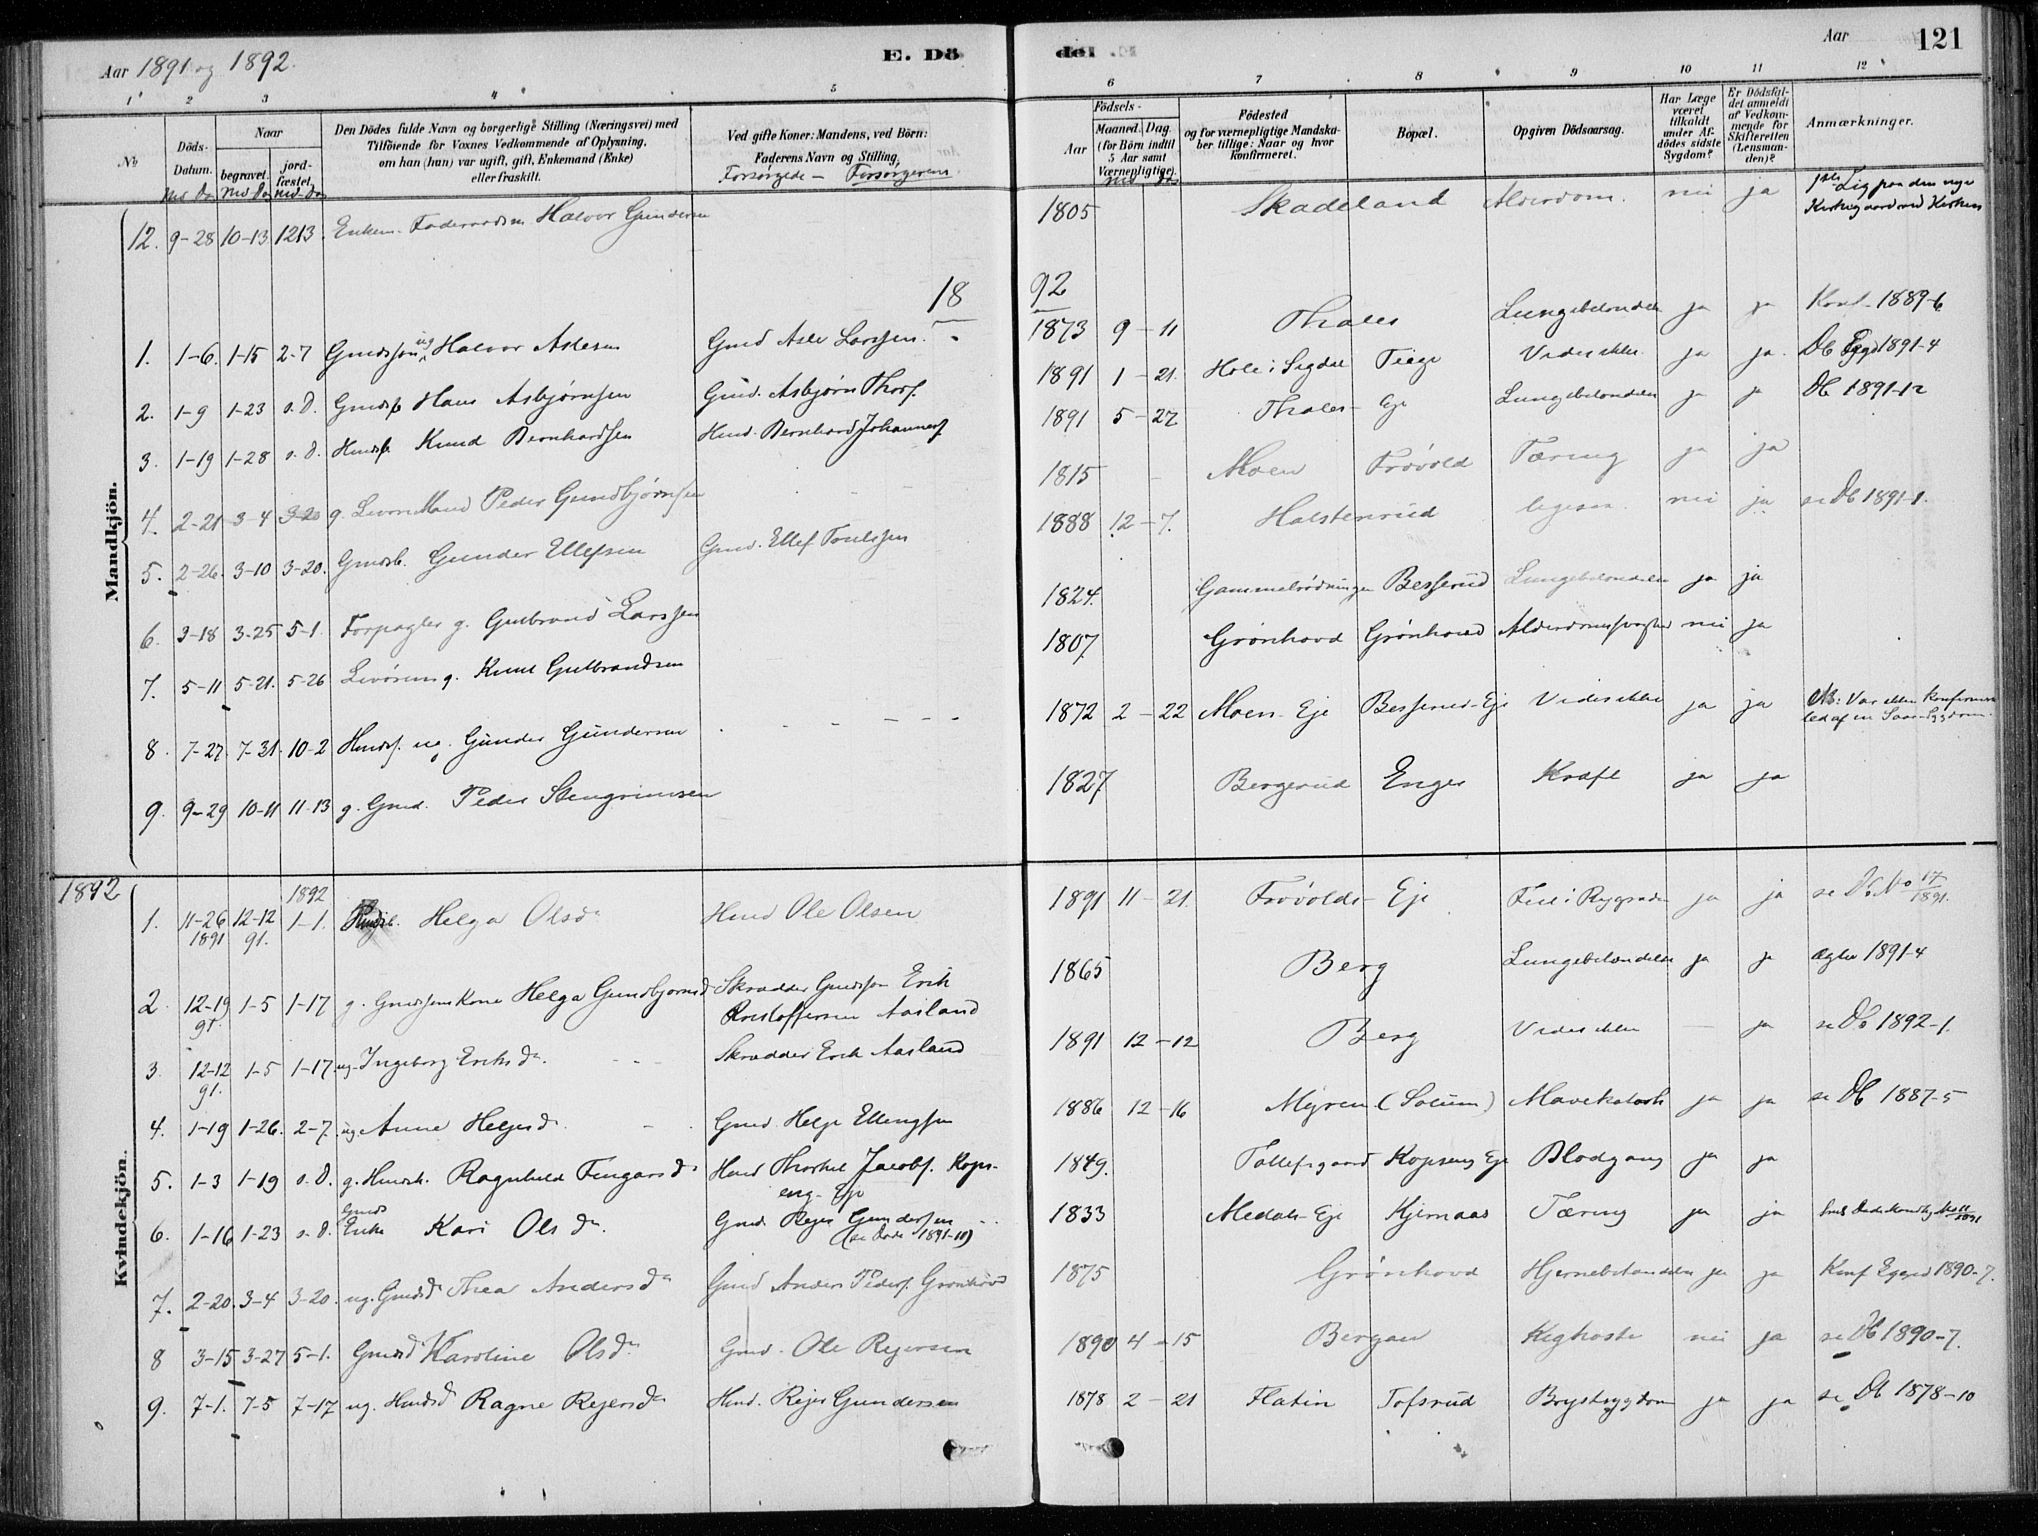 Aar 1891 og 1892.
E. Dö
del
Aar
121
1 2 3 4 5 6 7 8 9 10 11 12
No
Döds-Datum.
Naar
begravet.
jordfæstet.
Den Dödes fulde Navn og borgerlige Stilling (Næringsvei) med
Tilföiende for Voxnes Vedkommende af Oplysning,
om han (hun) var ugift, gift, Enkemand (Enke)
eller fraskilt.
Ved gifte Koner: Mandens, ved Börn:
Faderens Navn og Stilling.
Forsørgede — Forsørgerens
Födsels-
Aar
Maaned. Dag.
(for Börn indtil
5 Aar samt
Værnepligtige).
Födested
og for værnepligtige Mandskaber tillige: Naar og hvor
konfirmeret.
Bopæl.
Opgiven Dödsaarsag.
Har Læge
været
tilkaldt
under Afdödes sidste
Sygdom?
Er Dödsfaldet anmeldt
af Vedkommende for
Skifteretten
(Lensmanden)?
Anmærkninger.
Mandkjön.
12. 9-28 10-13 1213 Halvor Gundersen 1805 Skadeland Alderdom. nei ja 1ste Lig paa den nye Kirkegaard ved Kirken
18 92
1. 1-6. 1-15 2-7 Gmdssøn ug Halvor Aslesen Gmd Asle Larssen. 1873 9-11 Thales Lungebetændelse ja ja Konf. 1889-6
2. 1-9 1-23 s.D. Gmdsb Hans Asbjørnsen Gmd. Asbjørn Thors. 1891 1-21. Hole i Sigdal Teige Vides ikke ja ja. Db Eggd 1891-4
3. 1-19 1-28 s.D. Hmdsb. Knud Bernhardsen Hmd. Bernhard Johannes. 1891 5-27 Thales- Eje Lungebetændelse ja ja Db 1891-12
4. 2-21 3-4 3-20 g. Livøre Mand Peder Gundbjørnsen 1815 Moen Frøvold Tæring ja ja
5. 2-26. 3-10 3-20. Gmdsb. Gunder Ellefsen Gmd. Ellef 1888 12-7. Halstenrud nei ja se Db 1891-1.
6. 3-18 3-25 5-1. Forpagter g. Gulbrand Larssen 1824. Besserud Lungebetændelse ja ja
7. 5-11 5-21. 5-26 g. Knut Gulbrandsen 1807 Grønhovd Grønhovd nei ja
8. 7-27 7-31 10-2 Hmds. ug. Gunder Gundersen 1872 2-22 Moen-Eje Besserud-Eje Vides ikke ja ja NB: Var ikke konfirmeret
9. 9-29 10-11 11-13 g. Gmd. Peder Stengrimsen 1827 Bergerud Enger Kræft ja ja
1892
Kvindekjön.
1. 11-26 1891 12-12 91. 1892 1-1. Helga Olsdr Hmd Ole Olsen 1891 11-21. Frøvolds- Eje Feil i Rygraden ja ja se Db No 17 1891.
2. 12-19 91. 1-5 1-17 g. Gmdsøns Kone Helga Gundbjørnsd. Skrædder Gmdssøn Erik Kristoffersen Aasland 1865 Berg Lungebetændelse ja ja Egtev 1891-4
3. 12-12 91. 1-5 1-17 ug. Ingeborg Eriksdr. Skrædder Erik Aasland 1891 12-12 Berg Vides ikke — ja se Db 1892-1.
4. 1-19 1-26. 2-7. ug. Anne Helgesdr. Gmd Helge Ellingsen 1886 12-16 Myren (Solum) Mavekatarrh ja ja se Db 1887-5
5. 1-3 1-19 s.D. g. Hmdsk. Ragnhild Fingarsdr Hmd Thorkel Jacobs. Kopseng-Eje 1849. Tollefsgaard Kopseng Eje Blodgang ja ja
6. 1-16 1-23 s.D. Gmds Enke Kari Olsdr. Gmd. Rejer Gundersen (se Døde 1891-10) 1833 Medals-Eje Kjernaas Tæring ja ja
7. 2-20. 3-4 3-20. ug. Gmdsd. Thea Andersdr Gmd Anders Peders. Grønhovd 1875 Grønhovd Hjernebetændelse ja ja Konf Eggd 1890-7.
8 3-15 3-27 5-1. Gmdsd Karoline Olsdr Gmd. Ole Rejersen 1890 4-15 Bergan Kighoste nei ja se Db 1890-7.
9. 7-1. 7-5 7-17 ug. Hmdsd Ragne Rejersdr Hmd. Rejer Gundersen 1878 2-21 Flatin Tofsrud Brystsygdom ja ja se Db 1878-10